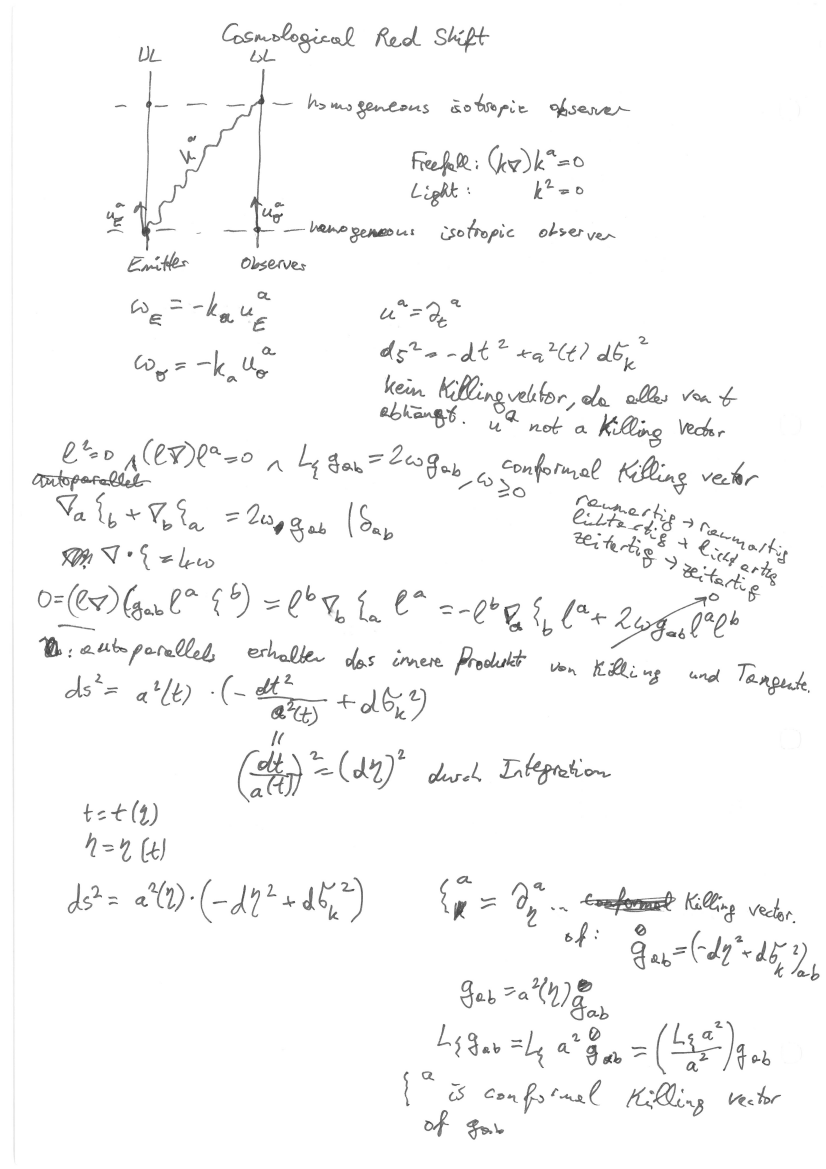 Cosmological Red Shift
WL WL
homogeneous isotropic observer
k^a
Freefall: (k∇)k^a=0
Light: k²=0
u_E^a u_O^a
homogeneous isotropic observer
Emitter Observer
ω_E = -k_a u_E^a
u^a = ∂_t^a
ω_O = -k_a u_O^a
ds² = -dt² + a²(t) dσ_k²
kein Killingvektor, da alles von t
abhängt. u^a not a Killing Vector
l²=0 ∧ (l∇)l^a=0 ∧ L_ξ g_ab = 2ω g_ab, ω≥0 conformal Killing vector
autoparallel
∇_a ξ_b + ∇_b ξ_a = 2ω g_ab | δ_ab
raumartig → raumartig
lichtartig → lichtartig
zeitartig → zeitartig
∇·ξ = 4ω
0=(l∇)(g_ab l^a ξ^b) = l^b ∇_b ξ_a l^a = -l^b ∇_a ξ_b l^a + 2ω g_ab l^a l^b
0
: autoparallels erhalten das innere Produkt von Killing und Tangente.
ds² = a²(t) · (- dt²/a²(t) + dσ_k²)
=
(dt/a(t))² = (dη)² durch Integration
t = t(η)
η = η(t)
ds² = a²(η)·(-dη² + dσ_k²)
ξ^a = ∂_η^a ... conformal Killing vector.
of: g̊_ab = (-dη² + dσ_k²)_ab
g_ab = a²(η) g̊_ab
L_ξ g_ab = L_ξ a² g̊_ab = (L_ξ a²/a²) g_ab
ξ^a is conformal Killing vector
of g_ab